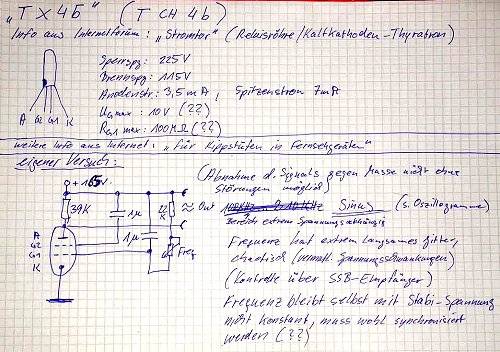 "TX4Б" (TCH4b)
Info aus Internetforum: "Stromtor" (Relaisröhre/Kaltkathoden-Thyratron)
Sperrspg: 225V
Brennspg: 115V
Anodenstr: 3,5mA, Spitzenstrom 7mA
UG1max: 10V (??)
RG1 max: 100MΩ (??)
A G2 G1 K
weitere Info aus Internet: "für Kippstufen in Fernsehgeräten"
eigener Versuch:
+165V
39K
1µ
22K
1µ
≈ Out
Freq
A
G2
G1
K
(Abnahme d. Signals gegen Masse nicht ohne
Störungen möglich)
Sinus (s. Oszillogramme)
Bereich extrem Spannungsabhängig
Frequenz hat extrem langsames Jitter,
chaotisch (vermutl. Spannungsschwankungen)
(Kontrolle über SSB-Empfänger)
Frequenz bleibt selbst mit Stabi-Spannung
nicht konstant, muss wohl synchronisiert
werden (??)